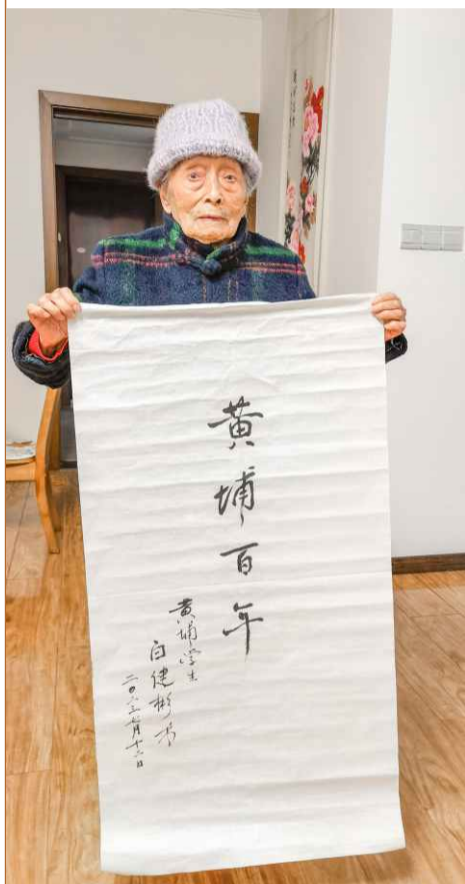 黄埔百年
黄埔学生
白健彬书
二〇二三年七月十二日